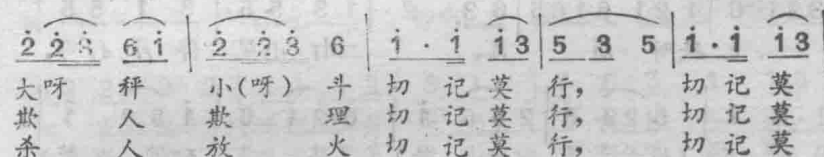 2̇ 2̇ 3̇ 6 i̇ | 2̇ 2̇ 3̇ 6 | i̇ · i̇ i̇ 3̇ | 5 3 5 | i̇ · i̇ i̇ 3̇
大呀 秤 小(呀) 斗 切 记 莫 行, 切 记 莫
欺 人 欺 理 切 记 莫 行, 切 记 莫
杀 人 放 火 切 记 莫 行, 切 记 莫